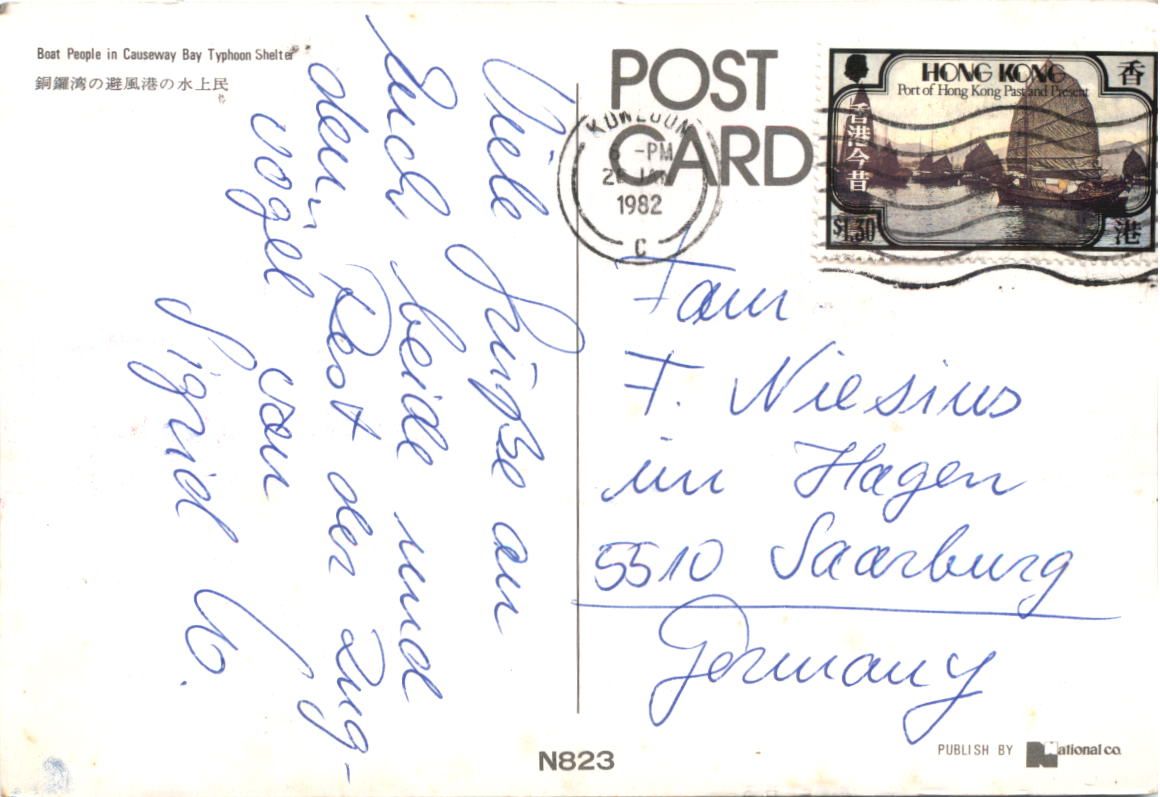 Boat People in Causeway Bay Typhoon Shelter
銅鑼湾の避風港の水上民
POST
CARD
HONG KONG
Port of Hong Kong Past and Present
香
港
香港今昔
$1.30
KOWLOON
6 -PM
JAN
1982
C
Viele Grüße an
Euch beide und
den Rest der Zug-
vögel von
Sigrid
Fam
F. Niesius
im Hagen
5510 Saarburg
Germany
N823
PUBLISH BY National co.